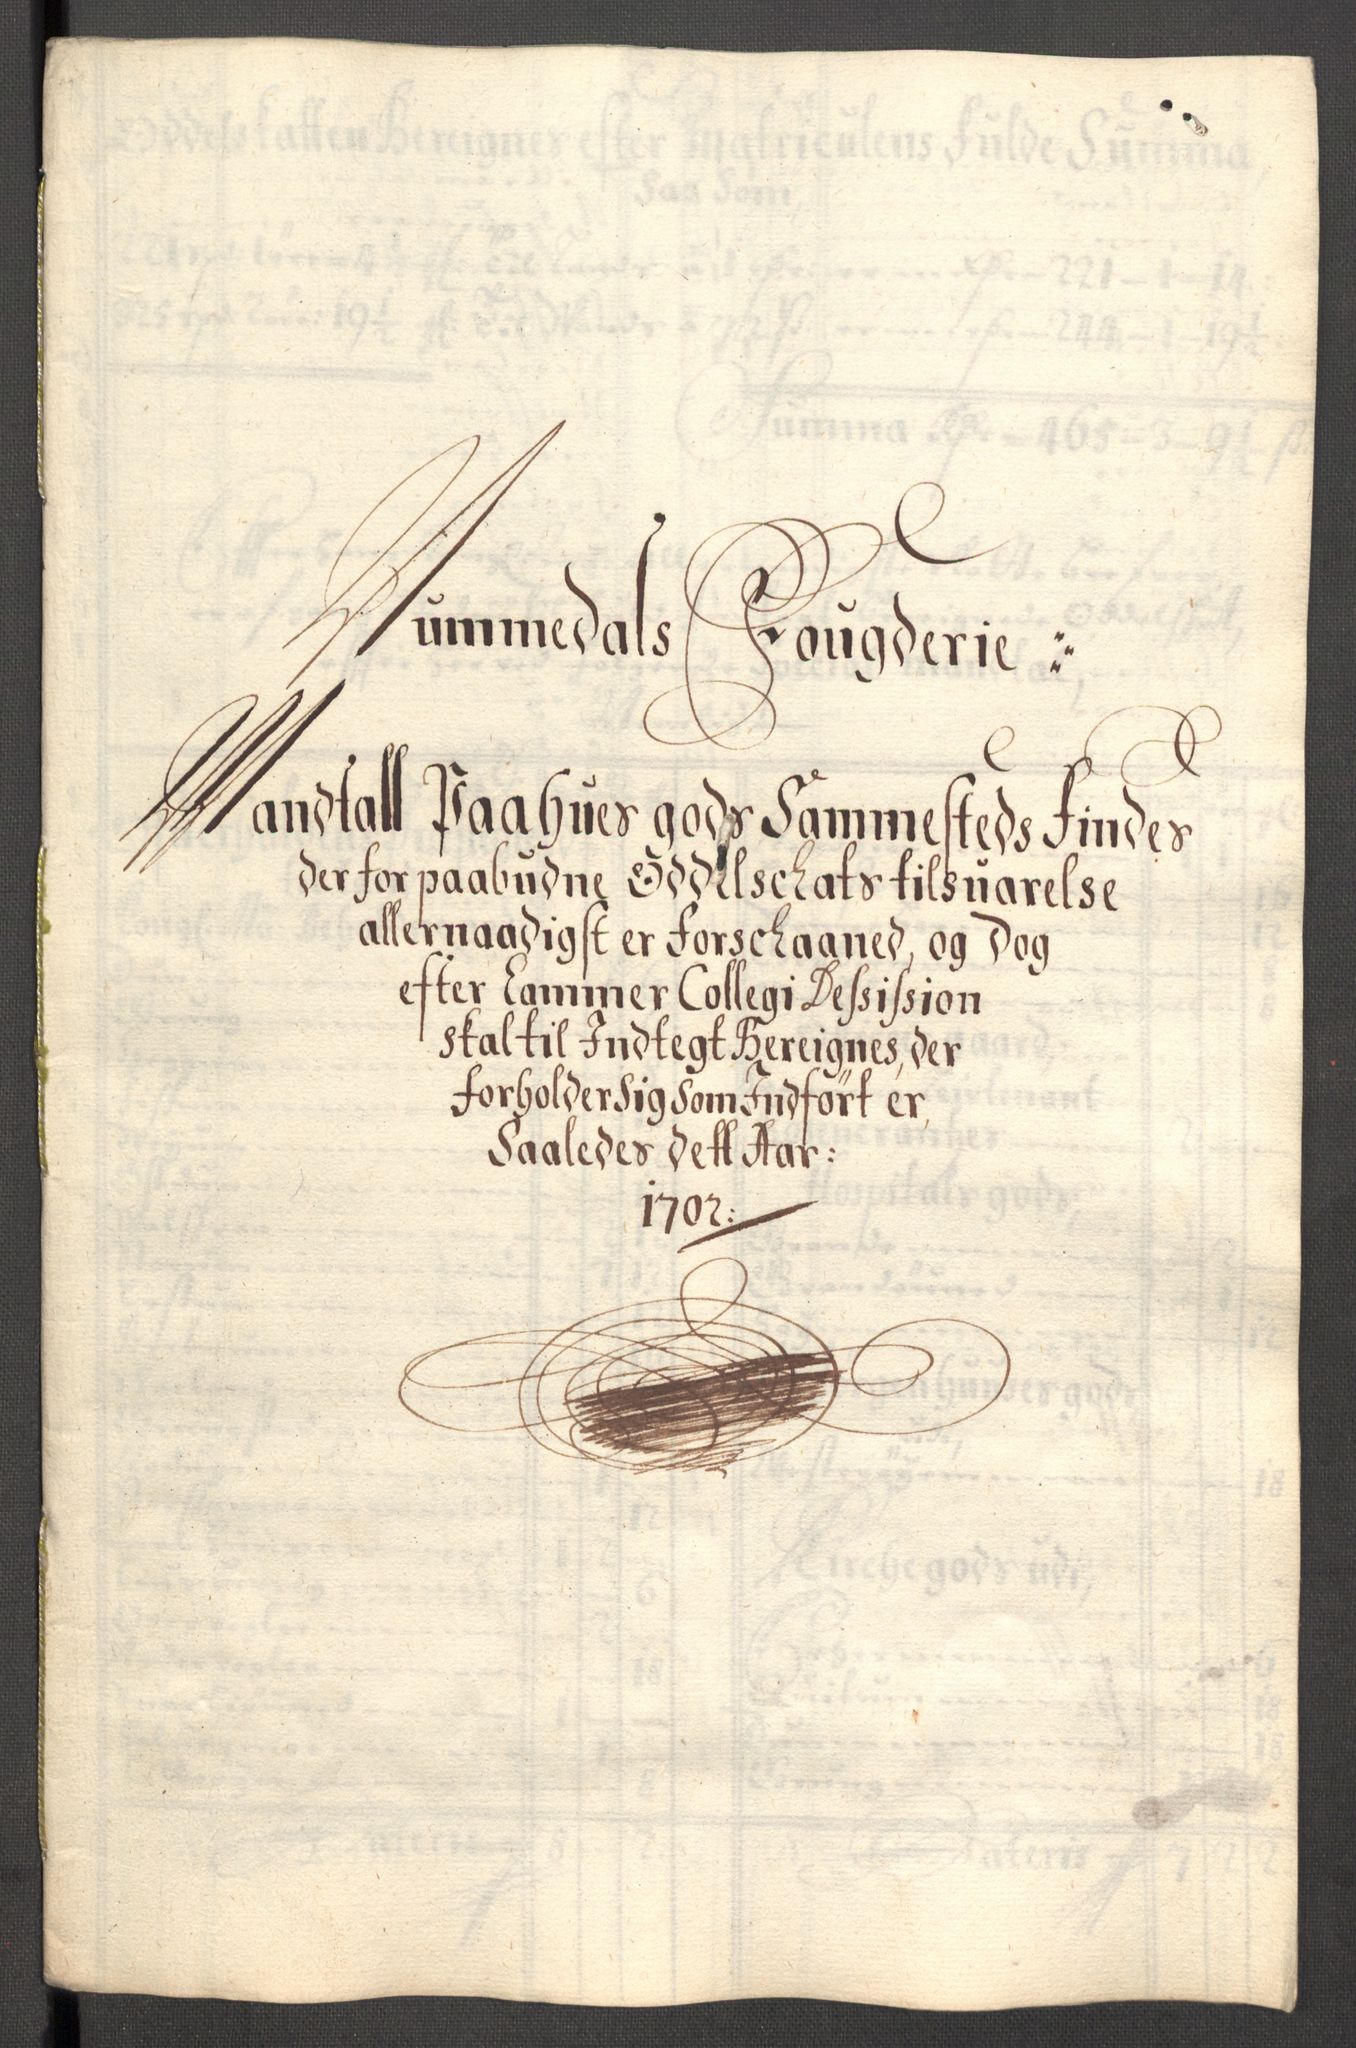 Nummedals Fougderie:
Mandtall Paa hues gods Sammesteds findes
der for paabudne Oddelschats tilsuarelse
allernaadigst er forschaaned, og dog
efter Cammer Collegi Dessission
skal til Indtegt Bereignes, der
forholder sig som Indført er,
Saaledes dett Aar:
1702: